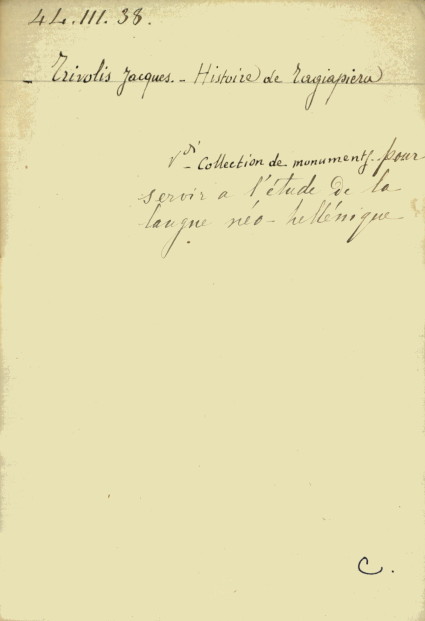 44.III.38.
Trivolis Jacques. - Histoire de Tagiapiera
Vdi - Collection de monuments. pour
servir a l'étude de la
langue néo-hellénique
C.